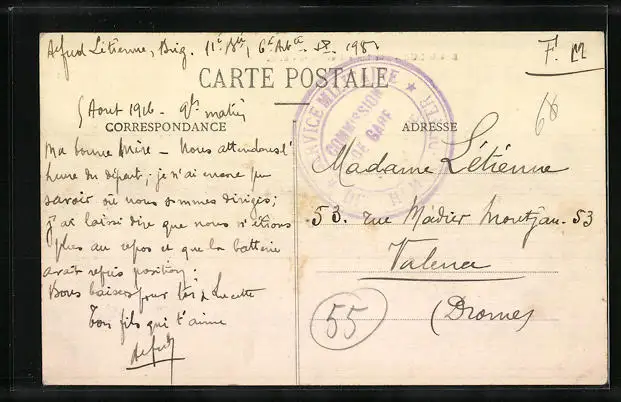 Alfred Létienne, Brig. 11e Bie, 6e Artie. S.P. 198
F. M
CARTE POSTALE
SERVICE MILITAIRE ★
COMMISSION
DE GARE
5 Aout 1916 - 9h matin
68
CORRESPONDANCE
ADRESSE
Ma bonne Mère - Nous attendons l'
heure du départ; je n'ai encore pu
savoir où nous sommes dirigés;
j'ai laissé dire que nous n'étions
plus au repos et que la batterie
avait repris position.
Bons baisers pour toi & Lucette
Ton fils qui t'aime
Alfred
Madame Létienne
53. rue Madier Montjau. 53
Valence
(Drome)
55